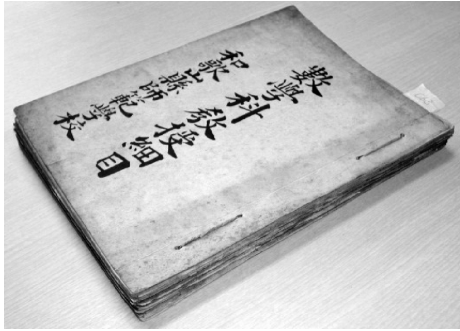 數學科教授細目
和歌山縣師範學校